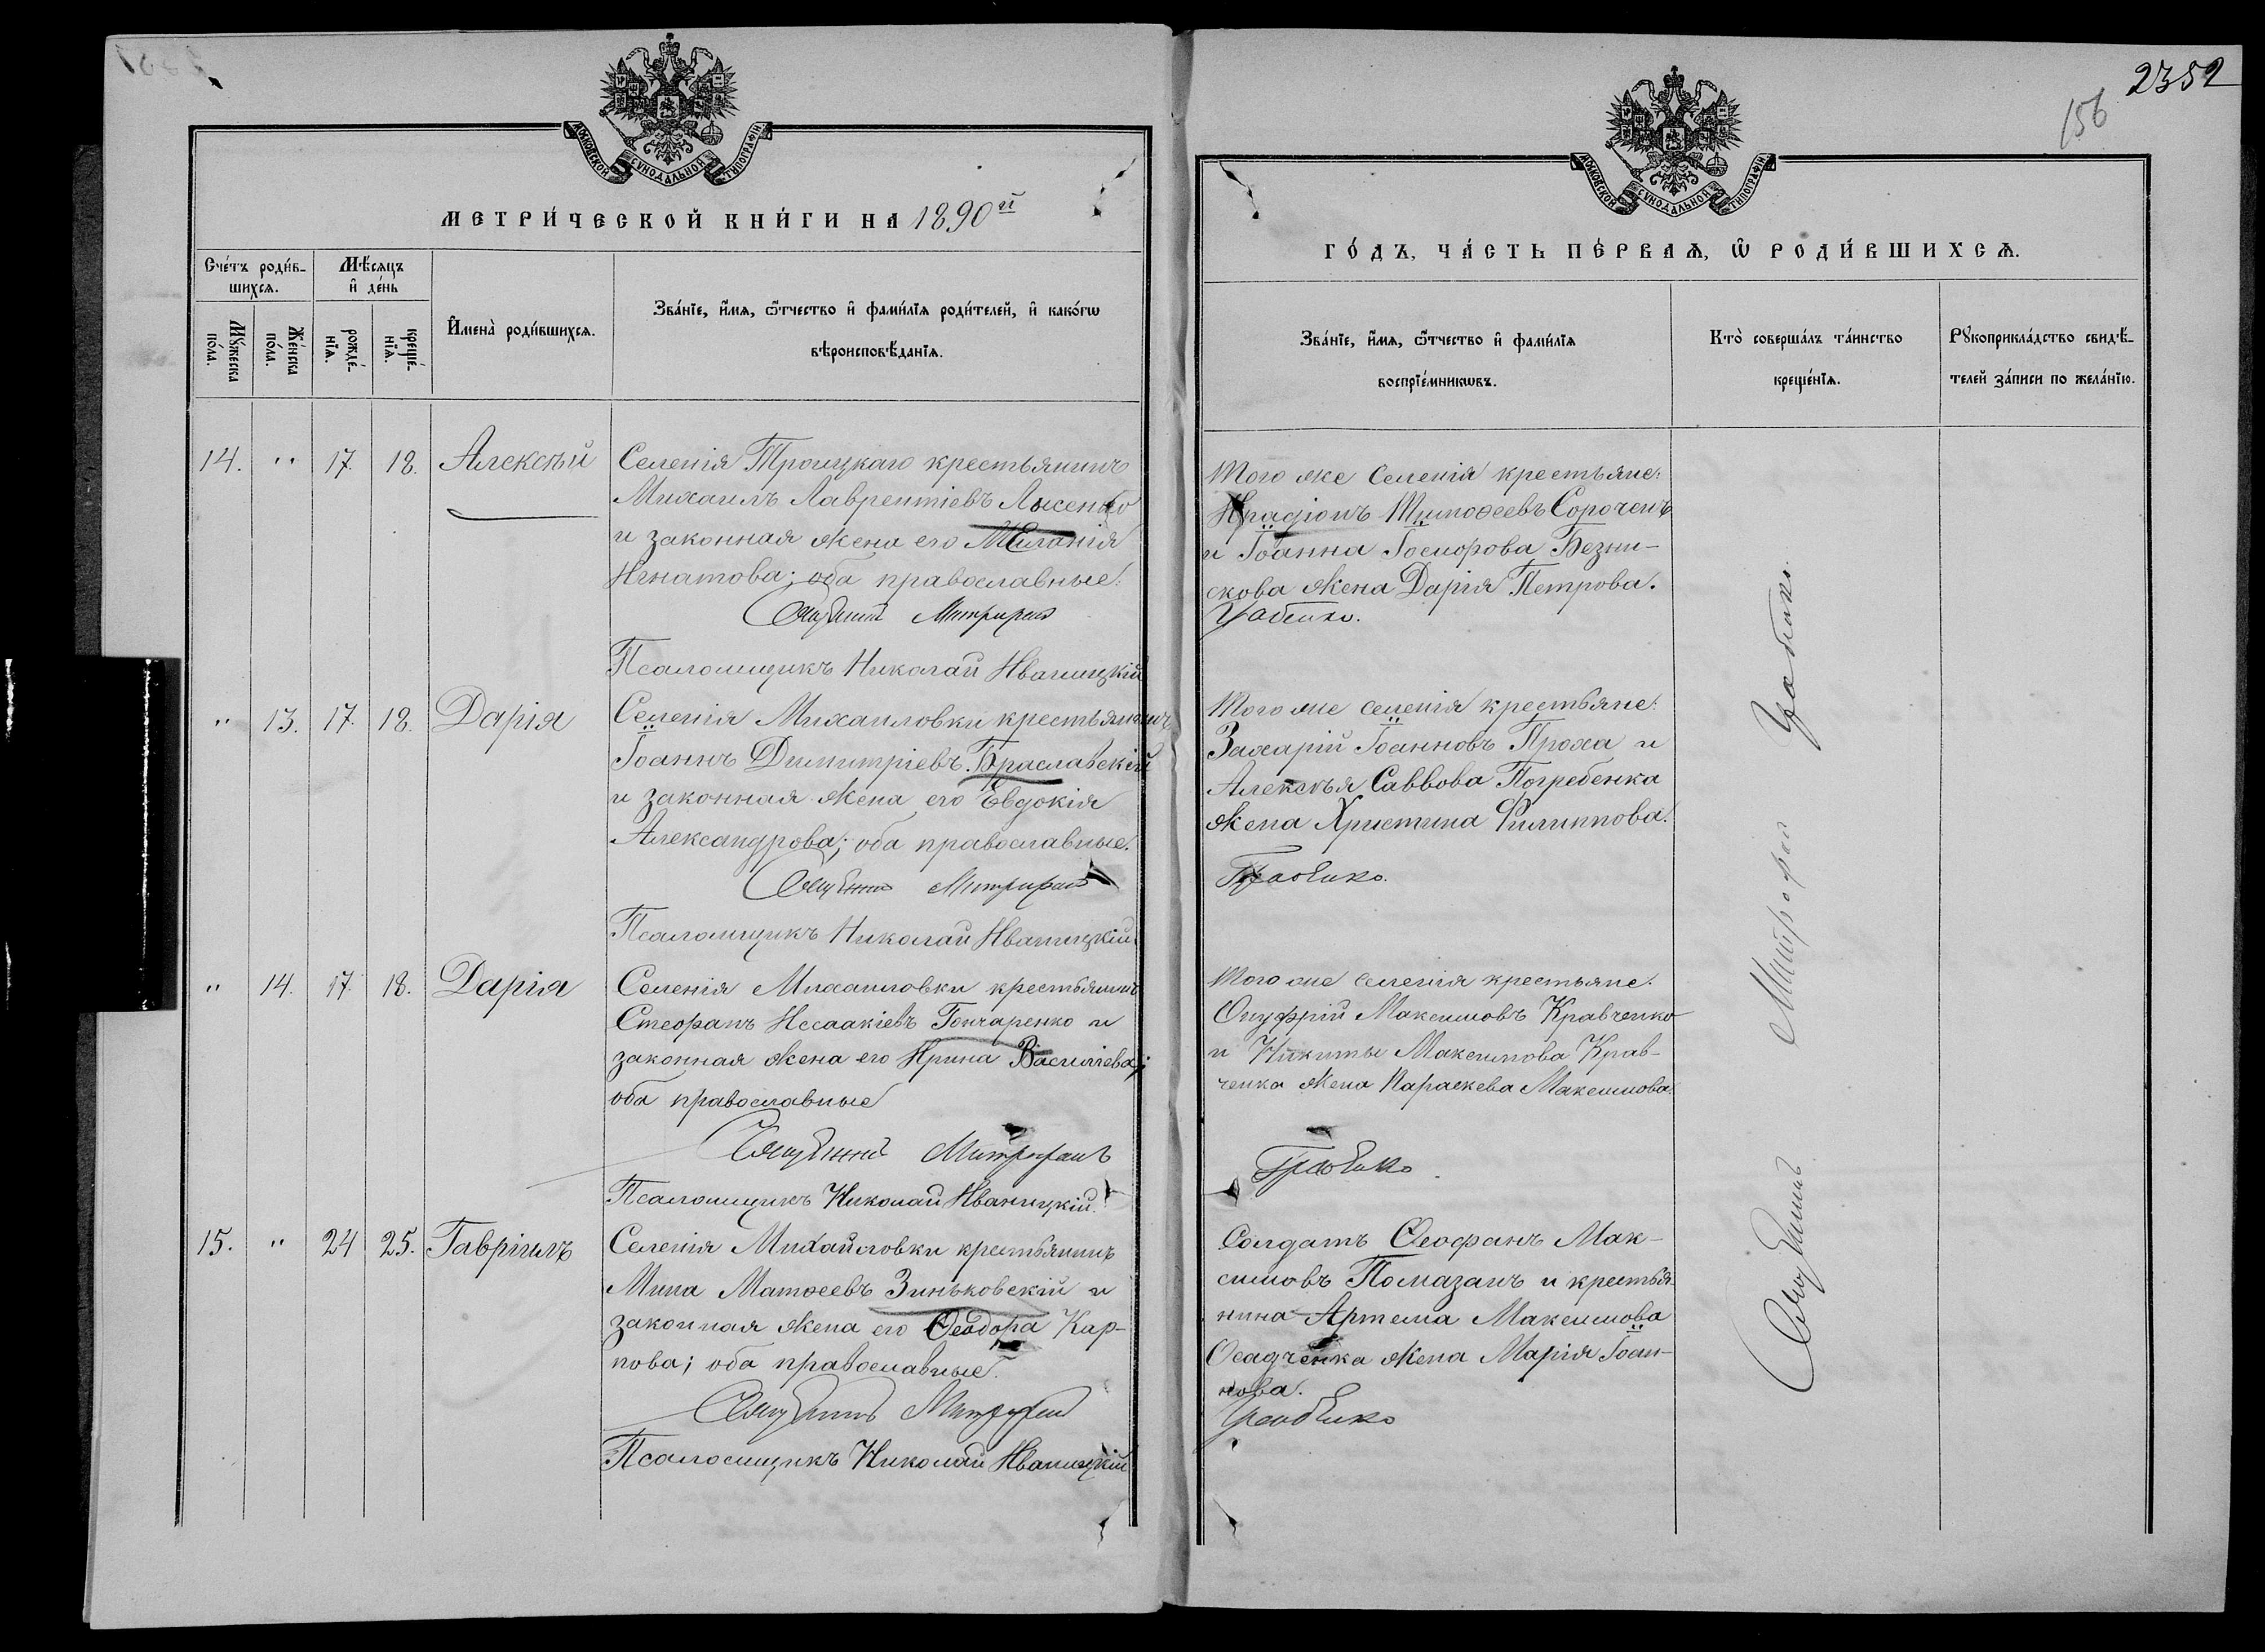 МОСКОВСКОЙ СѴНОДАЛЬНОЙ ТИПОГРАФІИ.
МЕТРИ́ЧЕСКОЙ КНИ́ГИ НА 1890й
Сче́тъ роди́в-
шихсѧ.
Мѣ́сѧцъ
и҆ де́нь
Мꙋ́жеска
по́ла.
Же́нска
по́ла.
рожде́-
нїѧ.
креще́-
нїѧ.
И҆мена̀ роди́вшихсѧ.
Зва́нїе, и҆́мѧ, ѻ҆́тчество и҆ фами́лїѧ роди́телей, и҆ како́гѡ
вѣроисповѣ́данїѧ.
14. " 17. 18. Алексѣй
Селенія Троицкаго крестьянинъ
Михаилъ Лаврентіевъ Лысенко
и законная жена его Меланія
Игнатова; оба православные.
Священникъ Митрофанъ
Псаломщикъ Николай Иваницкій
" 13. 17. 18. Дарія
Селенія Михайловки крестьянинъ
Іоаннъ Димитріевъ Браславскій
и законная жена его Евдокія
Александрова; оба православные.
Священникъ Митрофанъ
Псаломщикъ Николай Иваницкій
" 14. 17. 18. Дарія
Селенія Михайловки крестьянинъ
Стефанъ Исаакіевъ Гончаренко и
законная жена его Ирина Василіева;
оба православные
Священникъ Митрофанъ
Псаломщикъ Николай Иваницкій.
15. " 24 25. Гавріилъ
Селенія Михайловки крестьянинъ
Мина Матѳеевъ Зиньковскій и
законная жена его Ѳеодора Кар-
пова; оба православные.
Священникъ Митрофанъ
Псаломщикъ Николай Иваницкій
2352
156
МОСКОВСКОЙ СѴНОДАЛЬНОЙ ТИПОГРАФІИ.
ГО́ДЪ, ЧА́СТЬ ПЕ́РВАѦ, Ѡ҆ РОДИ́ВШИХСѦ.
Зва́нїе, и҆́мѧ, ѻ҆́тчество и҆ фами́лїѧ
воспрїе́мникѡвъ.
Кто̀ соверша́лъ та́инство
креще́нїѧ.
Рꙋкоприкла́дство свидѣ́-
телей за́писи по жела́нїю.
Того же селенія крестьяне:
Иродіонъ Тимоѳеевъ Сороченъ
и Іоанна
жена Дарія Петрова.
Грабенко.
Того же селенія крестьяне:
Захарій Іоанновъ Проха и
Алексѣя Саввова Погребенка
жена Христина Филиппова.
Грабенко.
Того же селенія крестьяне:
Онуфрій Максимовъ Кравченко
и Никиты Максимова Крав-
ченка жена Параскева Максимова.
Грабенко
Солдатъ Ѳеофанъ Мак-
симовъ Помазанъ и крестья-
нина Артема Максимова
Осадченка жена Марія Іоан-
нова.
Грабенко
Священникъ Митрофанъ Грабенко.